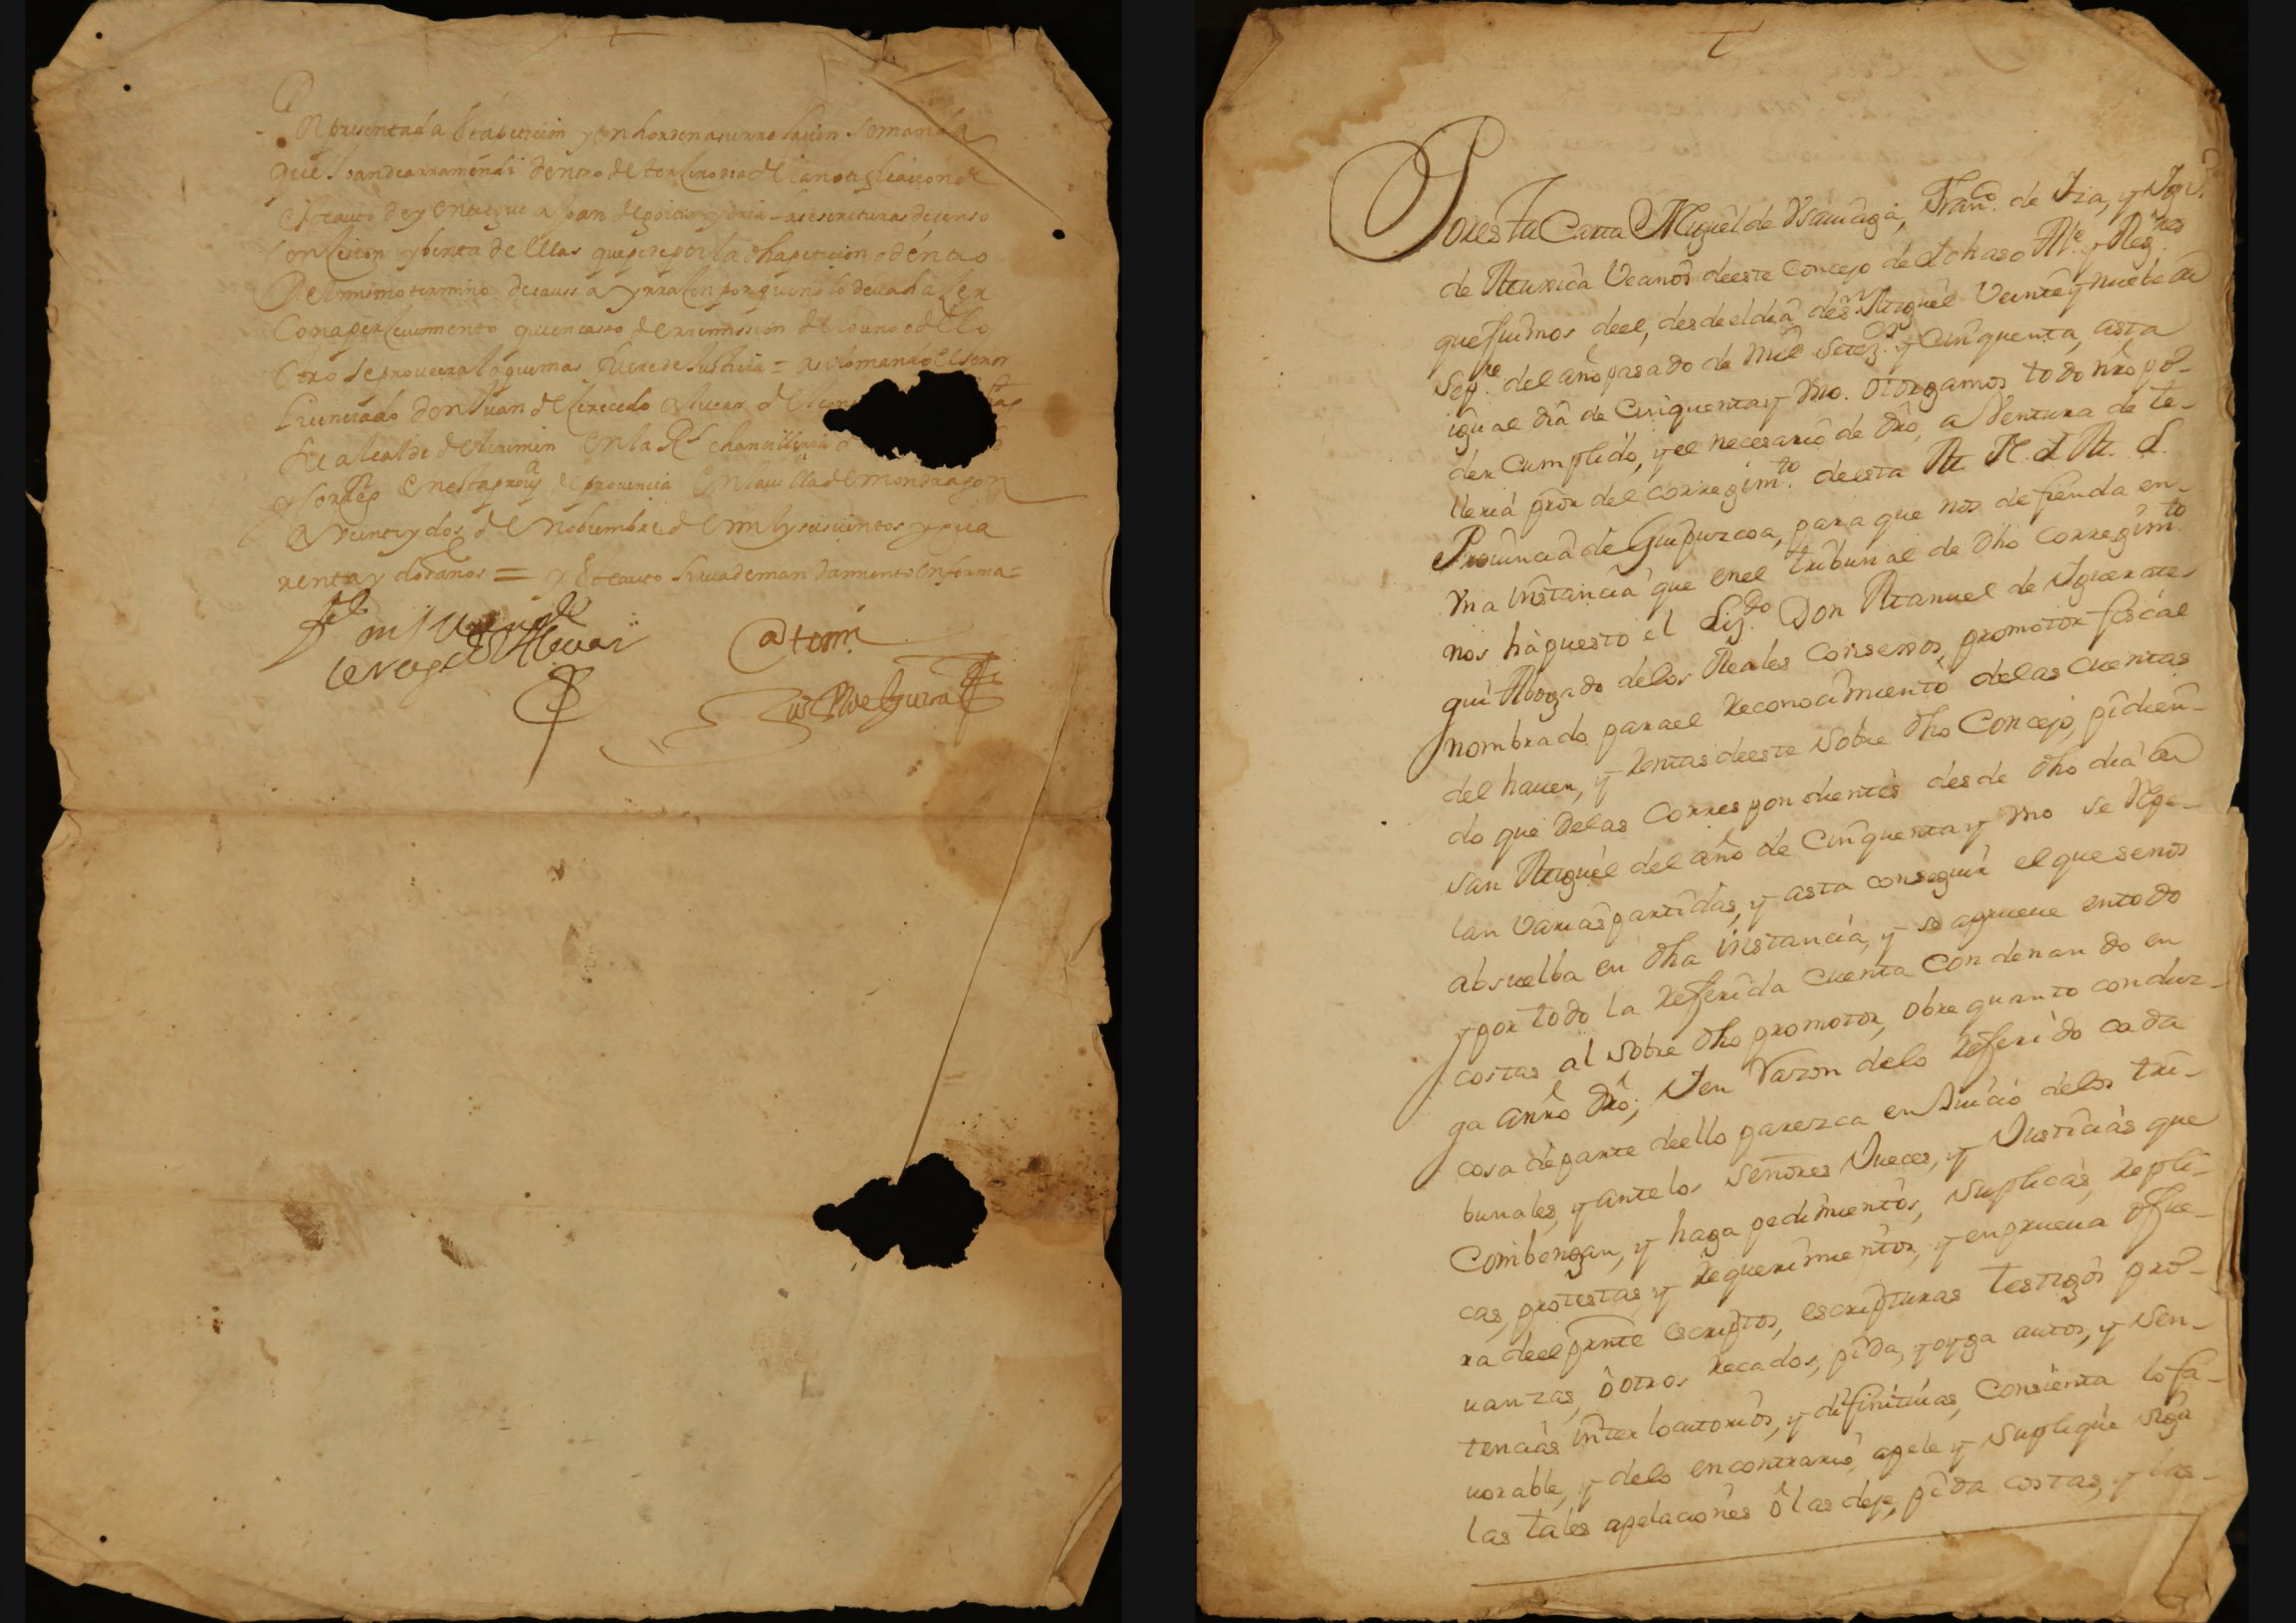 Por presentada esta peticion y en horden a su rrelacion se manda
que Joan de arramendi dentro de tercero dia de la notificacion de
este auto de y entregue a Joan de las escrituras de censo
con cesion y benta de ellas que pide por la dha peticion o dentro
Del mismo termino de causa y rraçon por que no lo deua haçer
Con aperceuimiento que en casso de rremission de lo uno o de lo
otro se proueera lo que mas hubiere de Justicia = asi lo mando el señor
Licenciado don Juan de
alcalde del crimen en la Rl chancilleria
y Corregr en esta prouya de prouincia en la uilla de mondragon
A veinte y dos de Nobiembre de mil y seiscientos y qua
renta y dos años = y este auto sirua de mandamiento en forma =
Ante mi
Por esta Carta Miguel de Vsauiaga, Franco. de Iza, y Ign.
de Murica Vecinos de este Concejo de Lohaso Ale. y Regres
que fuimos de el, desde el dia de sn Miguel Veinte y nuebe de
Sepre. del año pasado de mil setez.s y Cinquenta, asta
igual dia de Cinquenta y Vno. Otorgamos todo nro po-
der Cumplido, y el necesario de dro, a Ventura de te-
lleria pror del Corregimto. de esta M. N. L M. L.
Prouincia de Guipuzcoa, para que nos defienda en-
Vna instancia que en el tribunal de dho Corregimto
nos ha puesto el Lizdo. Don Manuel de Yguerate-
gui Abogado de los Reales Consexos, promotor fiscal
nombrado para el Reconocimiento de las Cuentas
del hauer, y Rentas de este Sobre dho Concejo, pidien-
do que delas Correspondientes desde dho dia de
san Miguel del año de Cinquenta y Vno se Repe-
lan Varias partidas, y asta conseguir el que se nos
absuelba en dha instancia, y se aprueue en todo
y por todo la Referida Cuenta Condenando en
costas al Sobre dho promotor, Obre quanto conduz-
ga a nro dro; Y en Razon delo Referido cada
cosa de parte de ello parezca en Juicio delos tri-
bunales, y ante los Señores Jueces, y Justicias que
Combengan, y haga pedimientos, Suplicas, Repli-
cas, protestas y Requerimientos, y en prueua o fue-
ra de el presnte escriptos, escripturas testigos pro-
uanzas, ô otros Recados, pida, y oyga autos, y Sen-
tencias interlocutorios, y difinitiuas, Consienta lo fa-
uorable, y delo en contrario, apele y Suplique Siga
las tales apelaciones ô las deje, pida costas, y las-